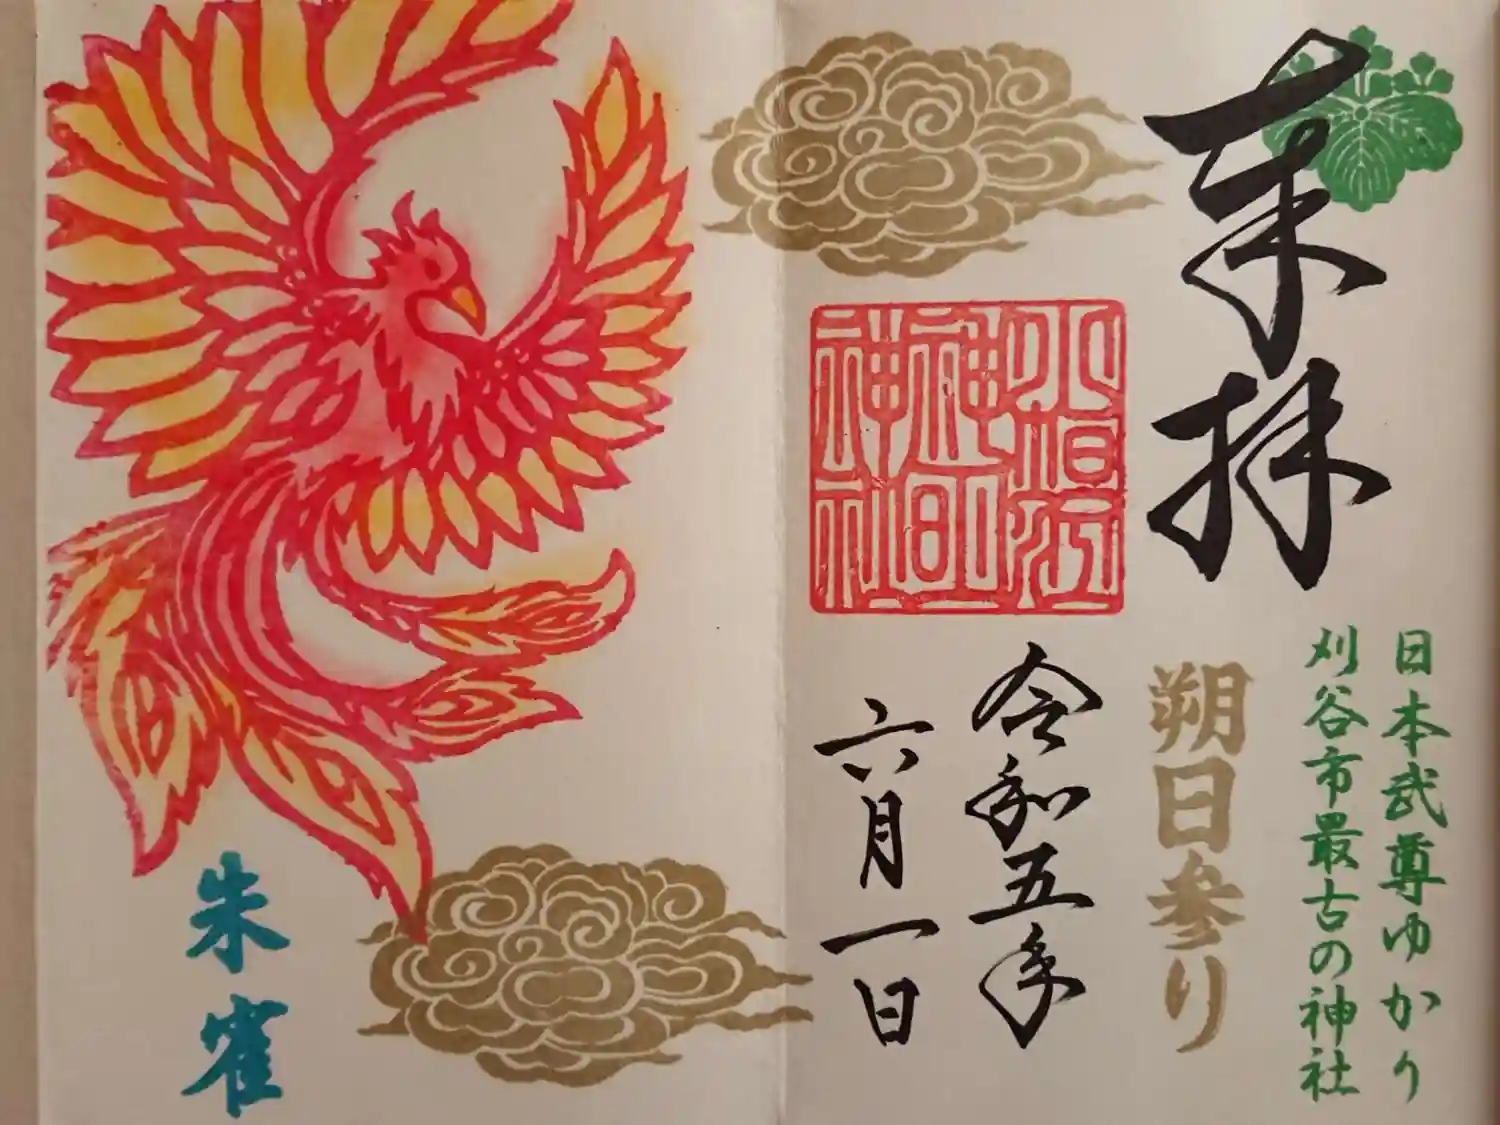 奉拝
日本武尊ゆかり
刈谷市最古の神社
朔日参り
小垣江
神明
神社
令和五年
六月一日
朱雀